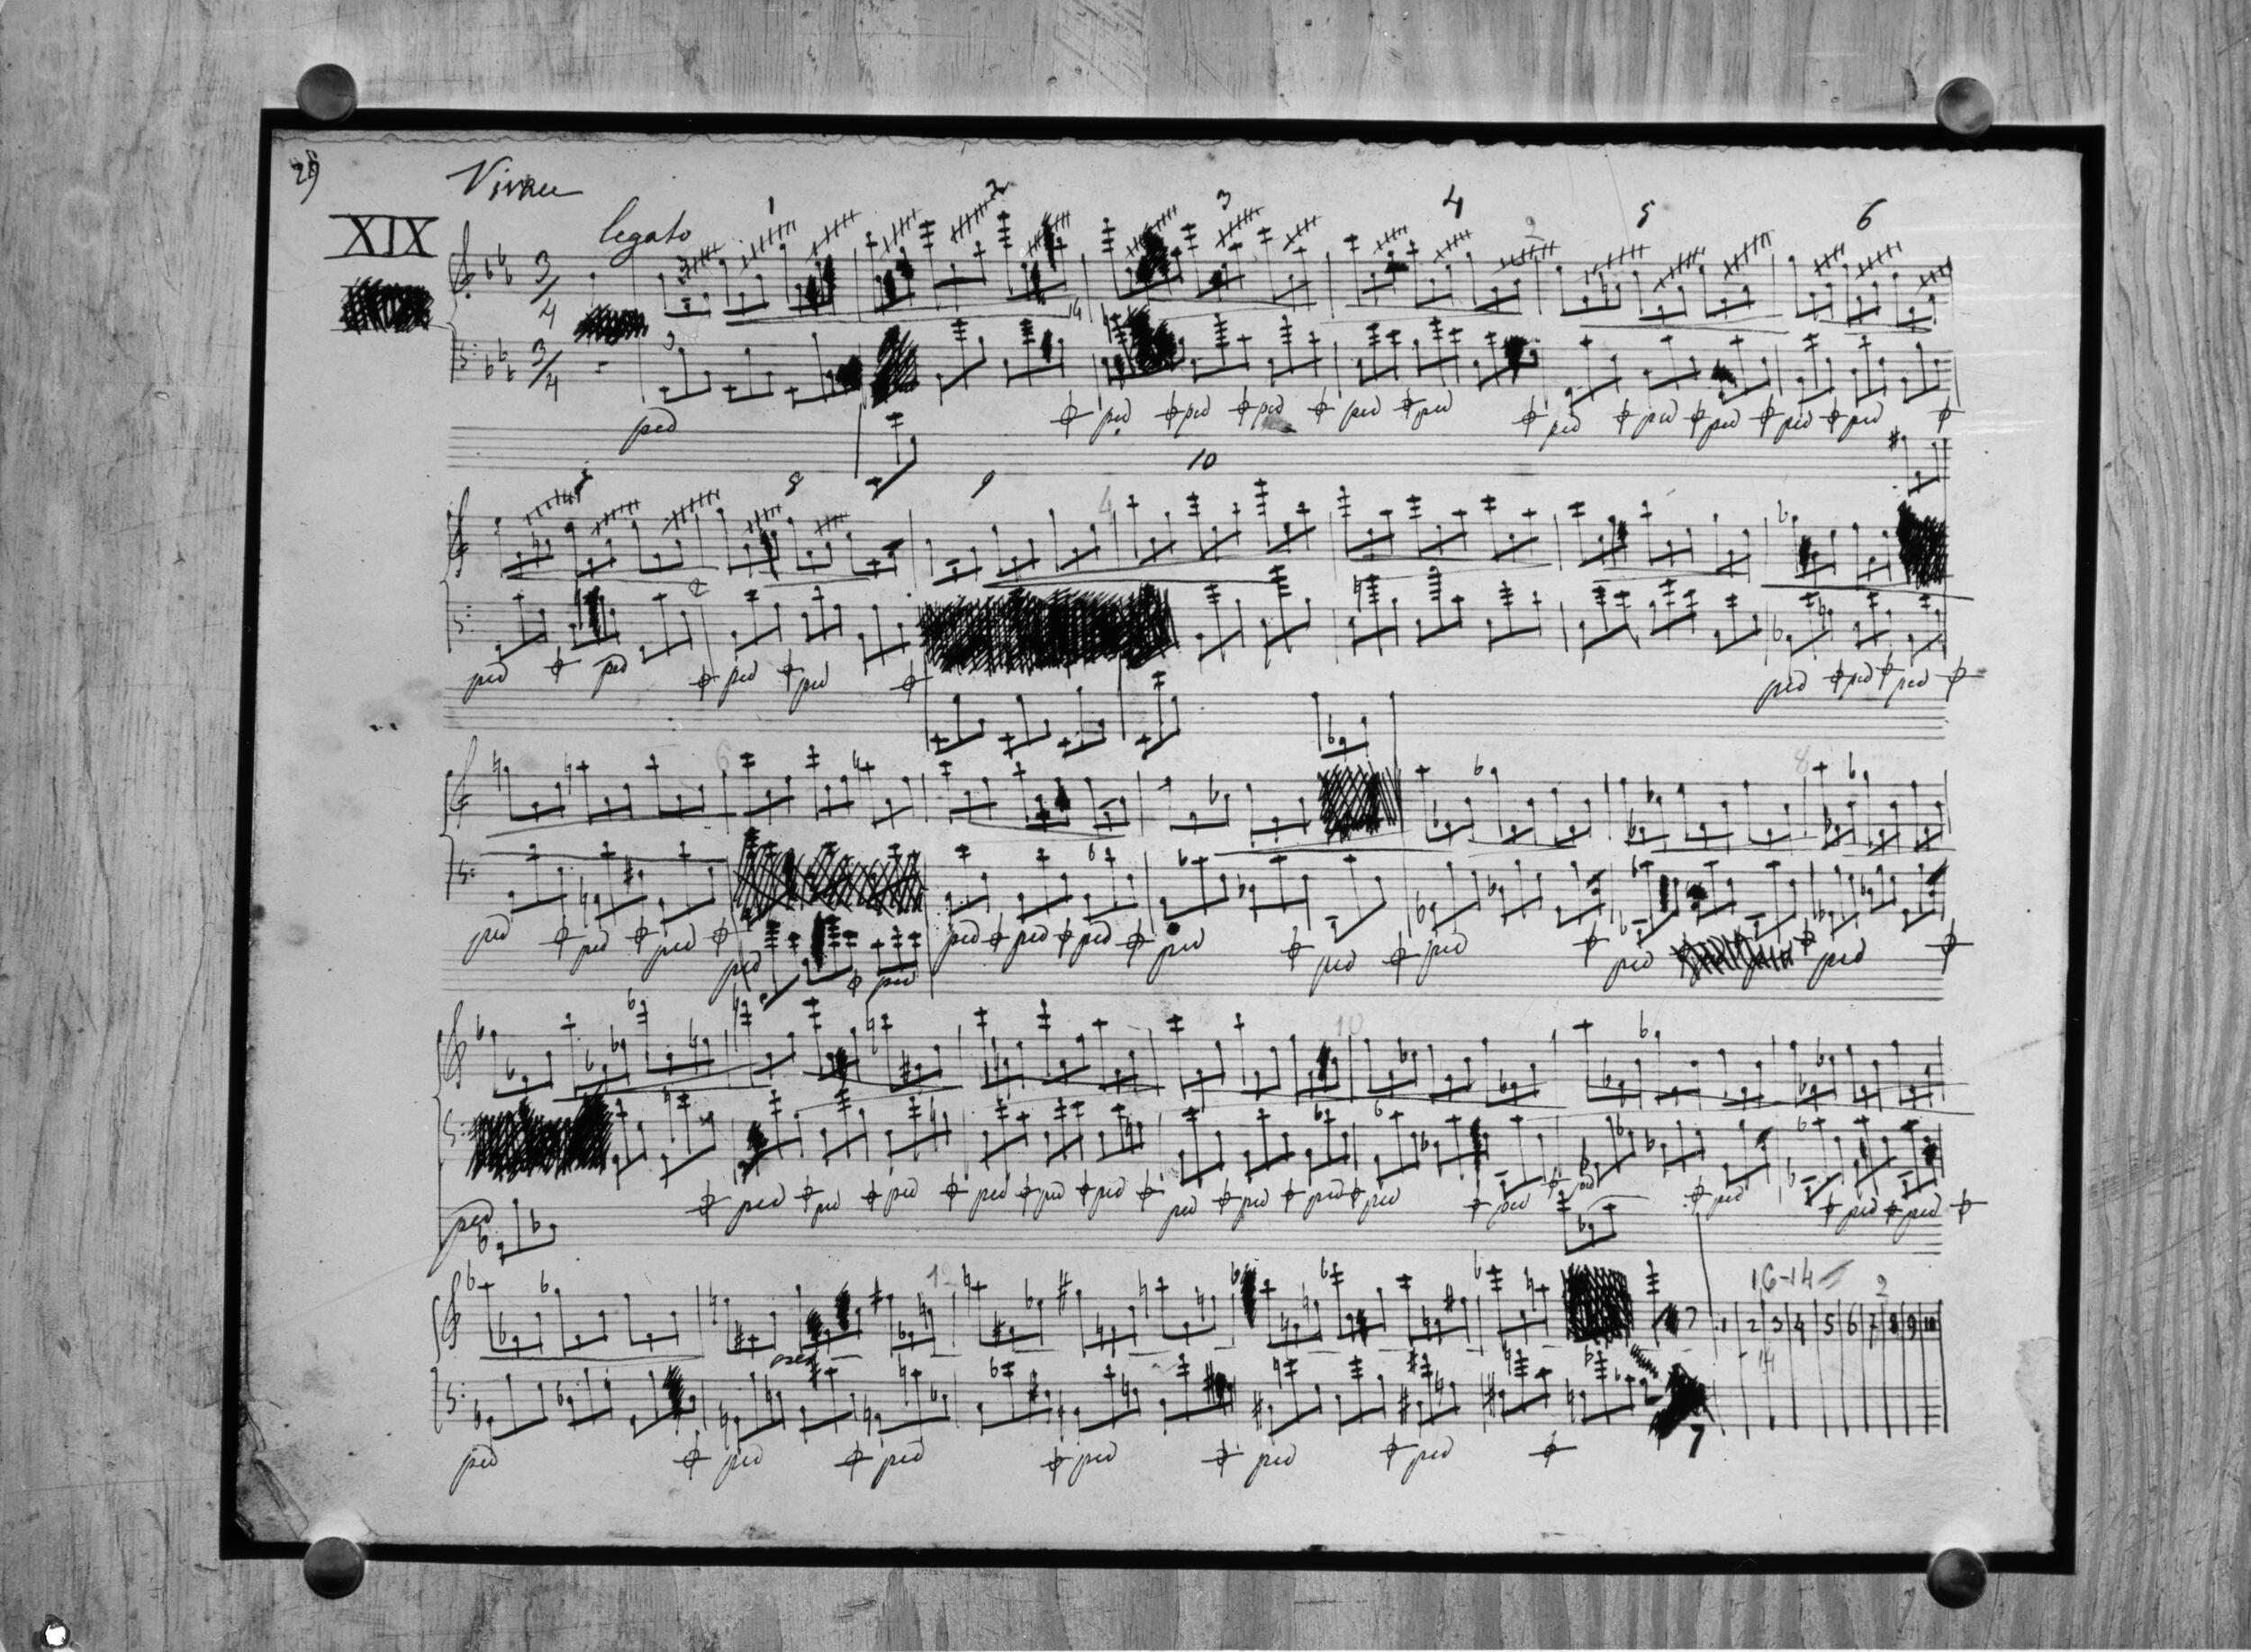 Vivace
XIX
legato
1 2 3 4 5 6
3/4
3/4
ped ped ped ped ped ped ped ped ped ped ped
7 8 9 10
4
ped ped ped ped ped ped ped
6 8
ped ped ped ped ped ped ped ped ped ped ped ped ped
10
ped ped ped ped ped ped ped ped ped ped ped ped ped ped ped ped
16-14 2
1 2 3 4 5 6 7 8 9 10
14
cresc
7
ped ped ped ped ped ped